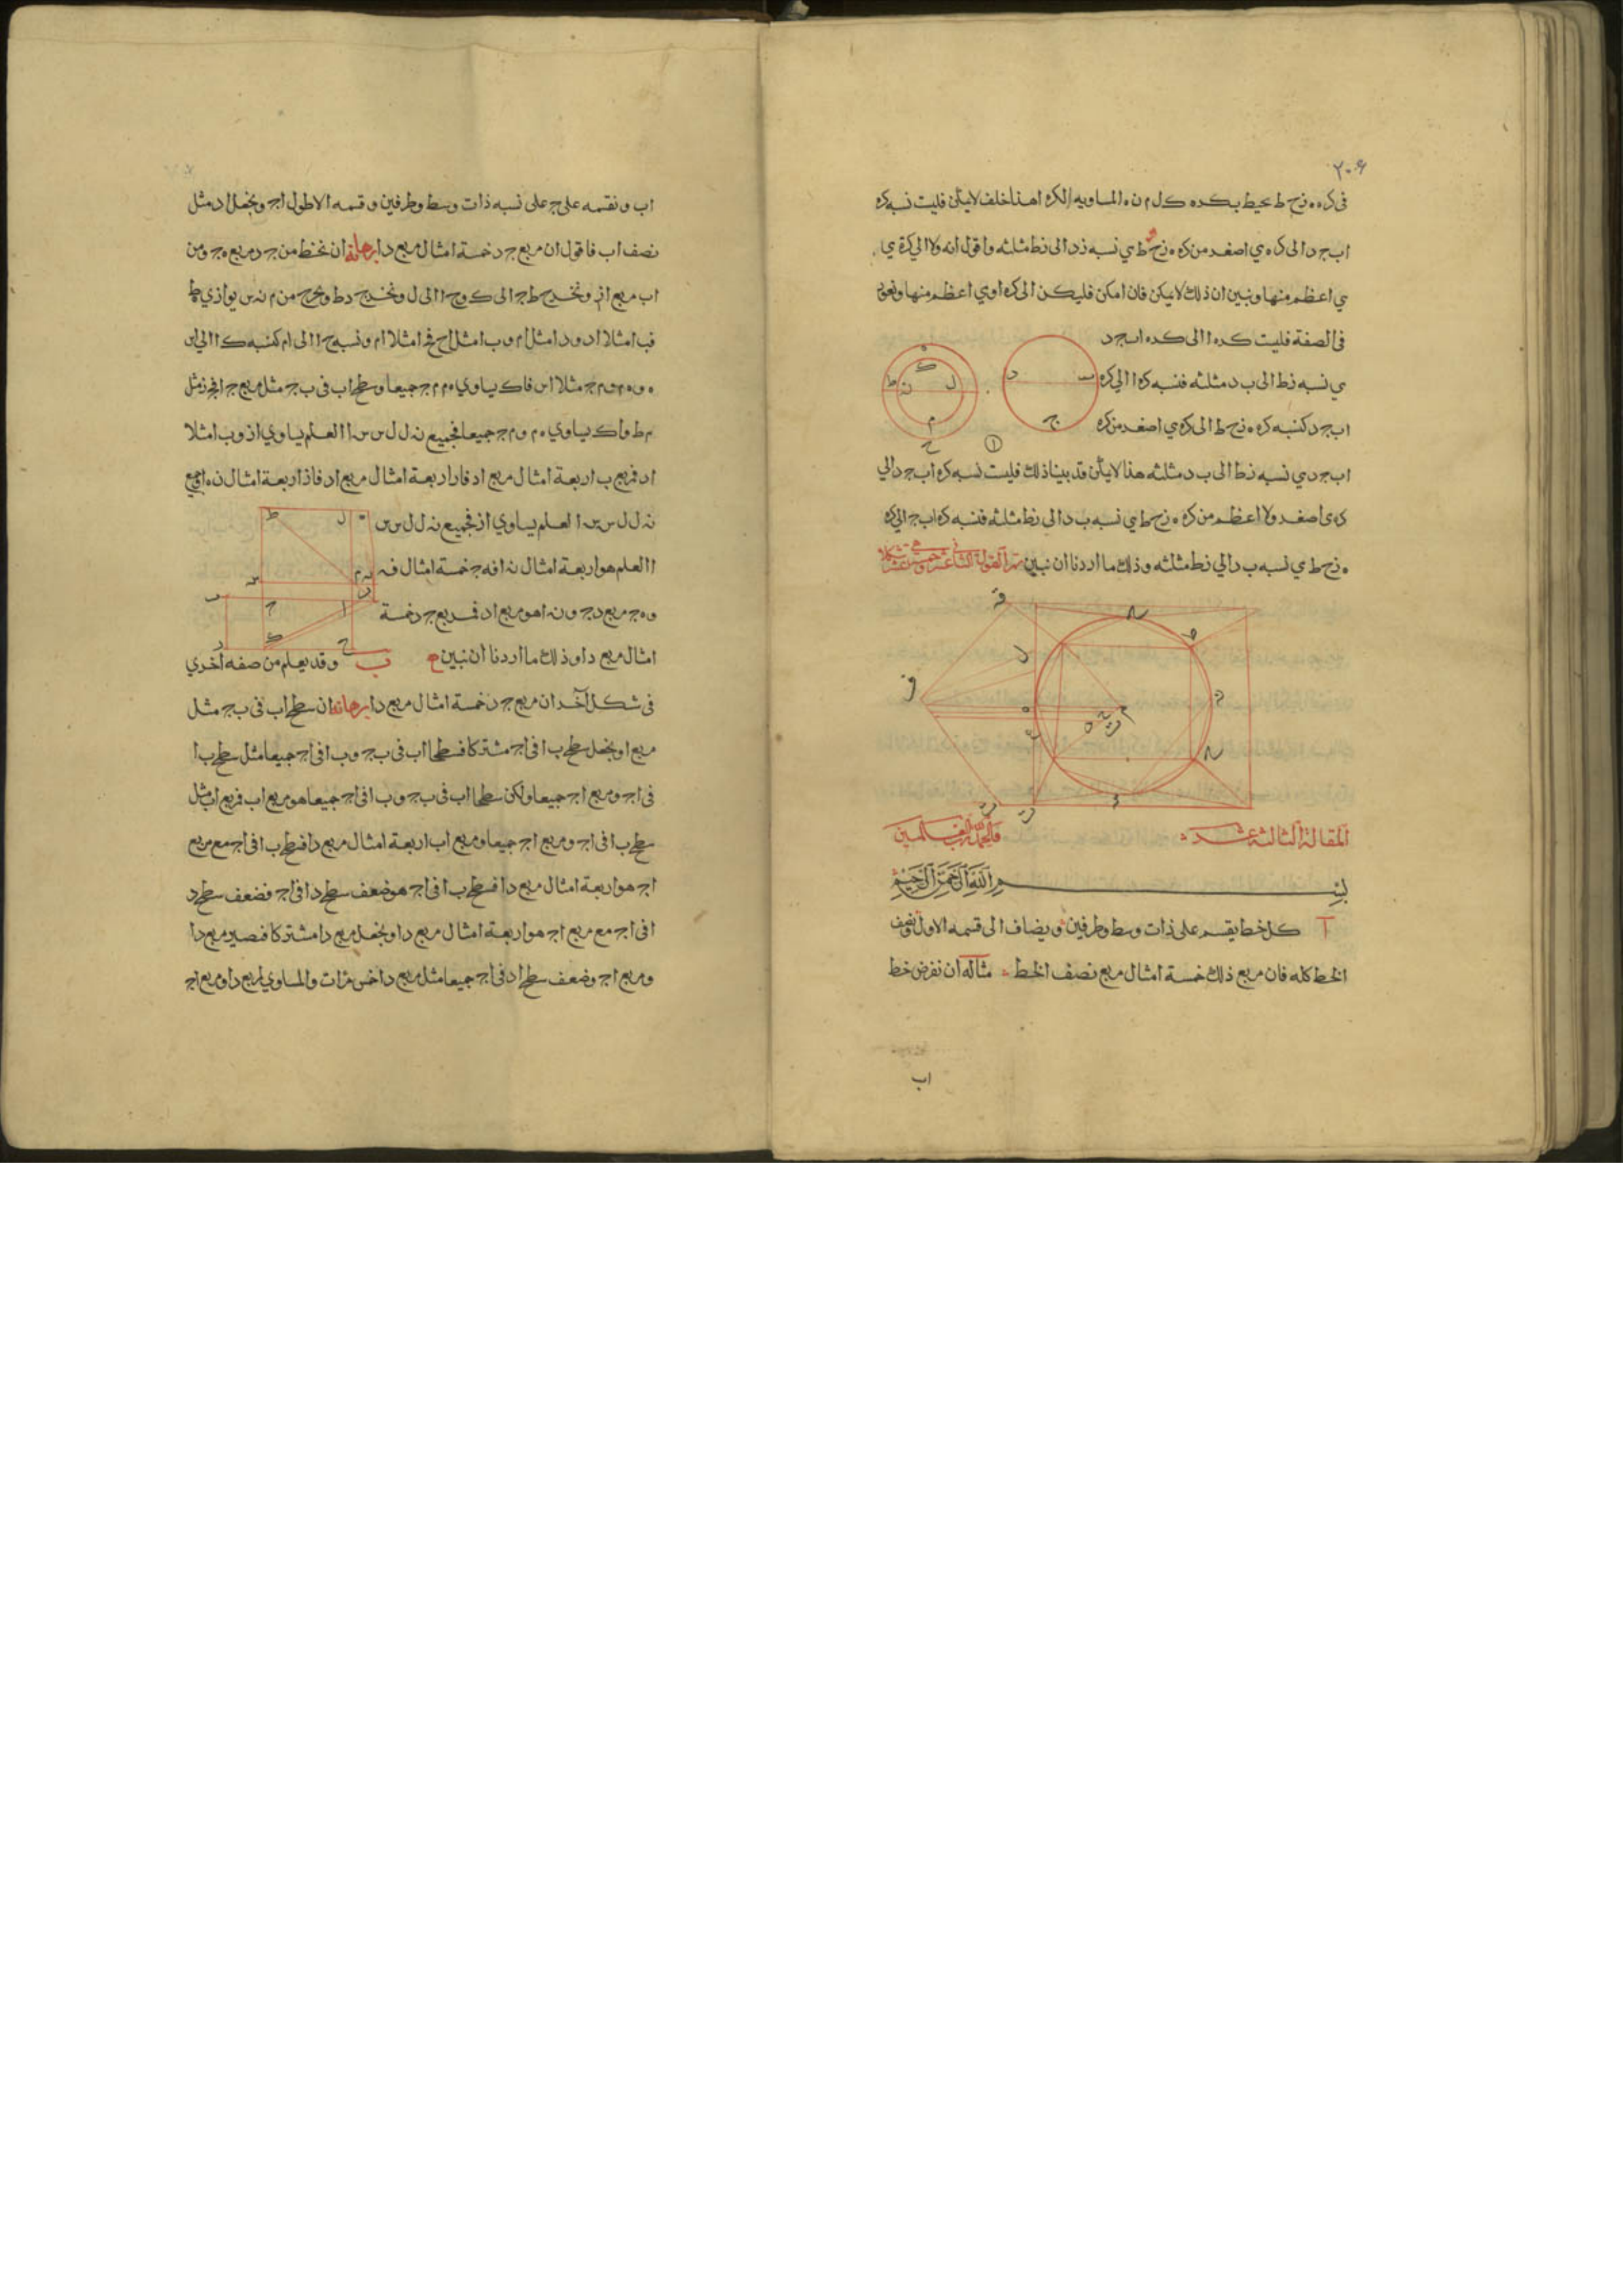 ٢٠٦
فى كره ه زح ط يحيط بكره ك ل م ن ه المساويه لكره ا هذا خلف لايمكن فليست نسبه كره
اب جد الى كره ي اصغر من كره ه زح ط ي نسبه زد الى زط مثلثه واقول انه ولا الى كرة ي
ي اعظم منها ونبين ان ذلك لايمكن فان امكن فليكن الى كره ا وي اعظم منها ونعود
فى الصفة فليست كره ا الى كره اب جد
ي نسبه زط الى ب د مثلثه فنسبه كره ا الى كره
اب جد كنسبه كره ه زح ط الى كره ي اصغر من كره
اب جد ي نسبه زط الى ب د مثلثه هذا لايمكن قد بينا ذلك فليست نسبه كره اب جد الى
كره ى اصغر ولا اعظم من كره ه زح ط ي نسبه ب د الى زط مثلثه فنسبه كره اب ج الى كره
ه زح ط ي نسبه ب د الي زط مثلثه وذلك ما اردنا ان نبين تمت المقولة الثانى عشر خمسة عشر شكلا
المقالة الثالثة عشر والحمد لله رب العالمين
بسم الله الرحمن الرحيم
آ كل خط يقسم على ذات وسط وطرفين ويضاف الى قسمه الاول نصف
الخط كله فان مربع ذلك خمسة امثال مربع نصف الخط مثاله ان نفرض خط
اب
اب ونقسمه على ج على نسبه ذات وسط وطرفين وقسمه الاطول اج ونجعل اد مثل
نصف اب فاقول ان مربع جد خمسة امثال مربع دا برهانه ان نخط من جد مربع ه ج ومن
اب مربع از ونخرج ط ج الى ك وح ا الى ل ونخرج د ط ونخرج من م ن س يوازي ط
فب ا مثلا اد ود ا مثل ام وب ا مثل اح فح ا مثلا ام ونسبه ح ا الى ام كنسبه ك ا الى اس
ه وه م وم ج مثلا اس فاك يساوي ه م م ج جميعا وسطح اب فى ب ج مثل مربع ج ا فج ز مثل
م ط واك يساوي ه م وم ج جميعا فجميع ن ل ل س س ا العلم يساوي از وب ا مثلا
اد فمربع ب ا ربعة امثال مربع اد فاز اربعة امثال مربع اد فاز اربعة امثال ن ه ا فجميع
ن ل ل س س ا العلم يساوي از فجميع ن ل ل س س
ا العلم هو اربعة امثال ن ا فه ج خمسة امثال ف ن
وه ج مربع دج ون ا هو مربع اد فمربع جد خمسة
امثال مربع دا وذلك ما اردنا ان نبين ب وقد يعلم من صفه اخري
فى شكل آخر ان مربع جد خمسة امثال مربع دا برهانه ان سطح اب فى ب ج مثل
مربع ا ونجعل سطح ب ا فى اج مشتركا فسطحا اب فى ب ج وب ا فى اج جميعا مثل سطح ب ا
فى اج ومربع اج جميعا ولكن سطحا اب فى ب ج وب ا فى اج جميعا هو مربع اب فمربع اب مثل
سطح ب ا فى اج ومربع اج جميعا ومربع اب اربعة امثال مربع دا فسطح ب ا فى اج مع مربع
اج هو اربعة امثال مربع دا فسطح ب ا فى اج هو ضعف سطح دا فى اج فضعف سطح د
ا فى اج مع مربع اج هو اربعة امثال مربع دا ونجعل مربع دا مشتركا فصير مربع دا
ومربع اج وضعف سطح اد فى اج جميعا مثل مربع دا خمس مرات والمساوي لمربع دا ومربع اج